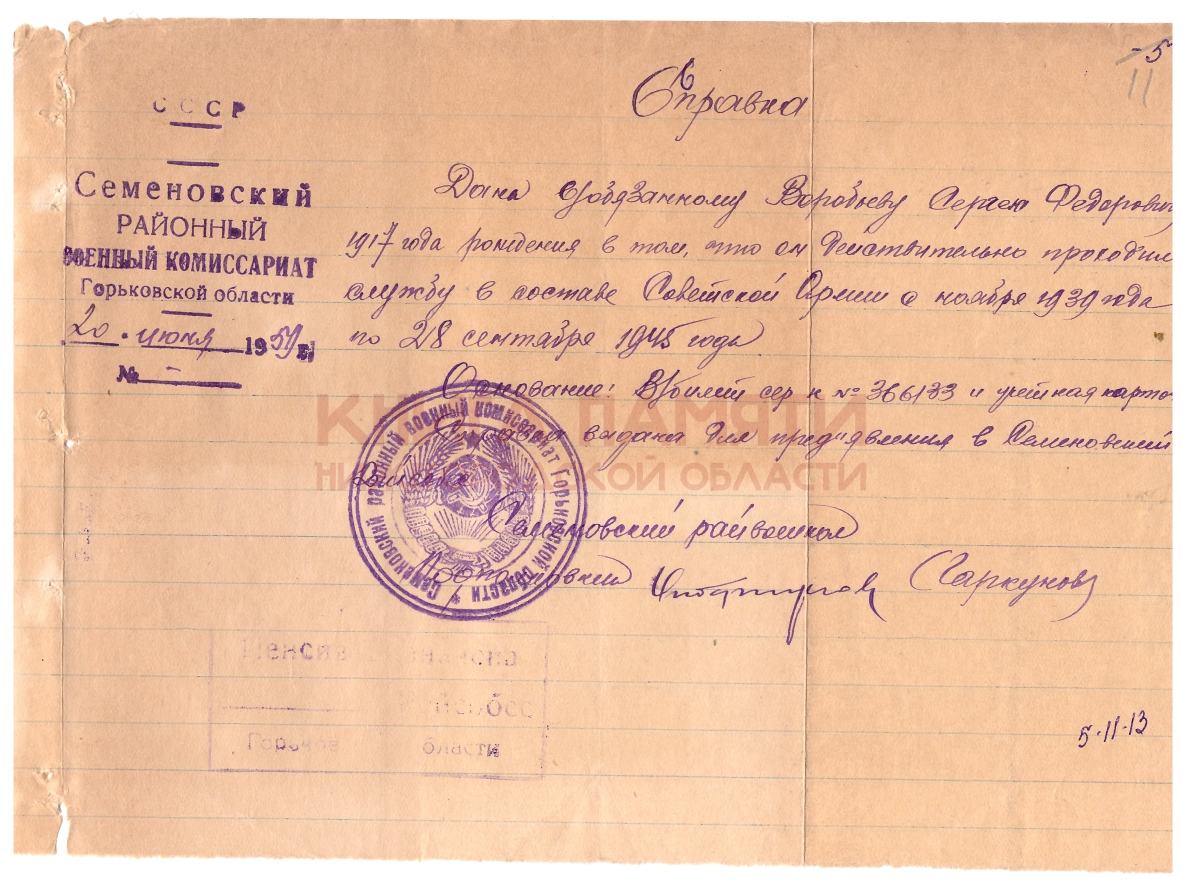 -5
11
СССР
Семеновский
РАЙОННЫЙ
ВОЕННЫЙ КОМИССАРИАТ
Горьковской области
20 июня 1959 г.
№ -
Справка
Дана в/обязанному Воробьеву Сергею Федорович
1917 года рождения в том, что он действительно проходил
службу в составе Советской Армии с ноября 1939 года
по 28 сентября 1945 года
Основание: В/билет сер № 366133 и учетная карто
Справка выдана для предъявления в Семеновский
Семеновский райвоенком
(Саркунов)
КНИГА ПАМЯТИ
НИЖЕГОРОДСКОЙ ОБЛАСТИ
Семеновский районный военный комиссариат Горьковской области *
области
5-11-13